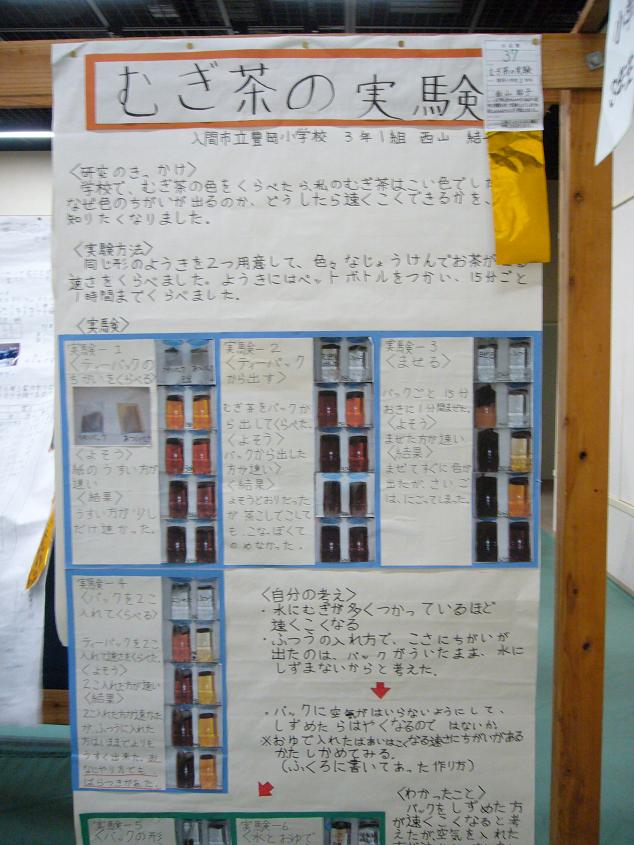 むぎ茶の実験
37
むぎ茶の実験
入間市立豊岡小学校 3年1組 西山 結
〈研究のきっかけ〉
学校で、むぎ茶の色をくらべたら、私のむぎ茶はこい色でした
なぜ色のちがいが出るのか、どうしたら速くこくできるかを、
知りたくなりました。
〈実験方法〉
同じ形のようきを2つ用意して、色々なじょうけんでお茶が
速さをくらべました。ようきにはペットボトルをつかい、15分ごと
1時間までくらべました。
〈実験〉
実験-1
〈ティーパックの
ちがいをくらべる〉
〈よそう〉
紙のうすい方が
速い
〈結果〉
うすい方が少し
だけ速かった。
実験-2
〈ティーパック
から出す〉
むぎ茶をパックか
ら出してくらべた。
〈よそう〉
パックから出した
方が速い
〈結果〉
よそうどおりだった
が茶こしでこして
も、こなっぽくて
のめなかった。
実験-3
〈まぜる〉
パックごと15分
おきに1分間まぜた。
〈よそう〉
まぜた方が速い
〈結果〉
まぜてすぐに色が
出たが、さいご
は、にごってしまった。
実験-4
〈パックを2こ
入れてくらべる〉
ティーパックを2こ
入れて速さをくらべた。
〈よそう〉
2こ入れた方が速い
〈結果〉
2こ入れた方が速かた
が、ふつうに入れた
うすく出来た。
ばらつきがあた。
〈自分の考え〉
・水にむぎが多くつかっているほど
速くこくなる
・ふつうの入れ方で、こさにちがいが
出たのは、パックがういたまま、水に
しずまないからと考えた。
・パックに空気がはいらないようにして、
しずめたらはやくなるのではないか。
※おゆで入れたばあいはこくなる速さにちがいがある
かたしかめてみる。
(ふくろに書いてあった作り方)
〈わかったこと〉
パックをしずめた方
が速くこくなると考
えたが、空気を入れた
実験-5
〈パックの形
実験-6
〈水とおゆで